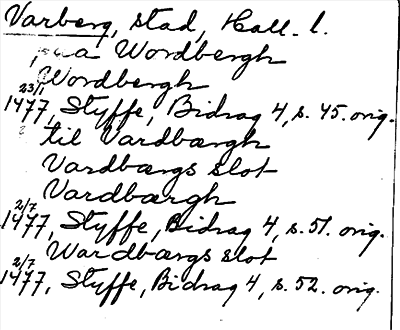 Varberg, stad, Hall. l.
paa Wordbergh
Wordbergh
23/1 1477, Styffe, Bidrag 4, s. 45. orig.
til Vardbærgh
Vardbærgs slot
Vardbærgh
2/7 1477, Styffe, Bidrag 4, s. 51. orig.
Wardbærgs slot
2/7 1477, Styffe, Bidrag 4, s. 52. orig.